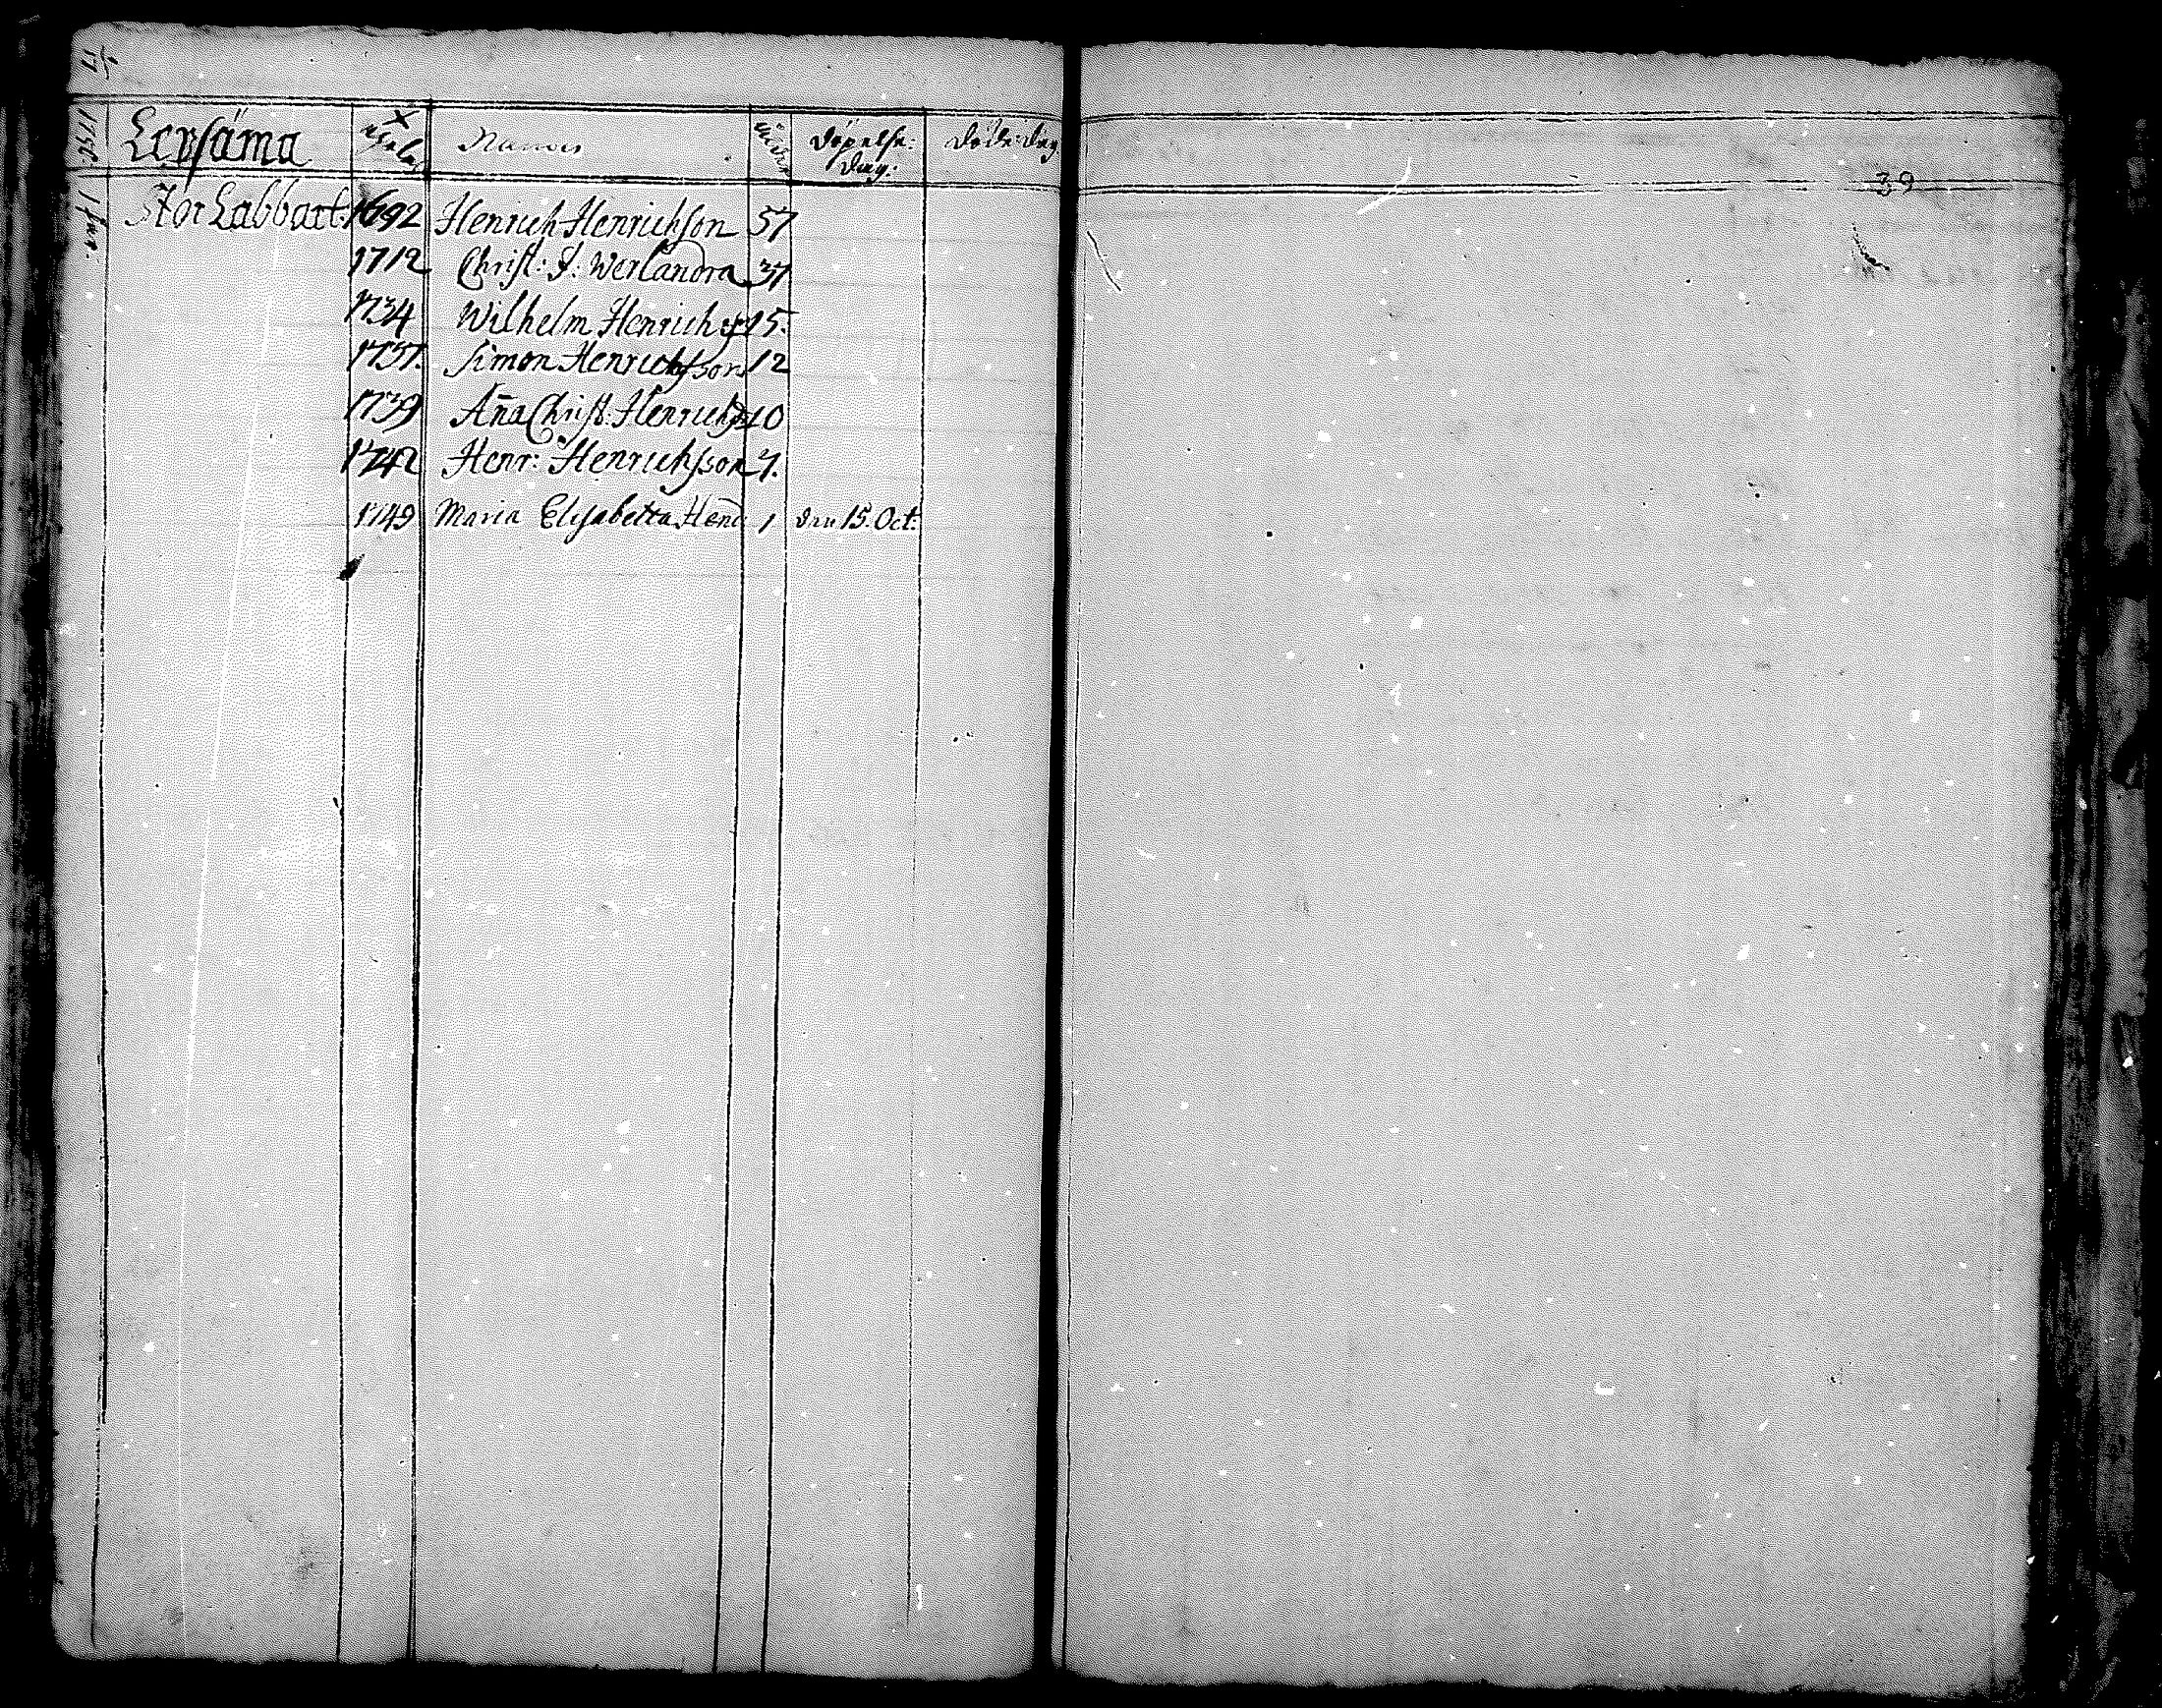 Lepsäma Namn Döpelse: Döde-dag.
dag:
39
Stor Labbart: 1692 Henrich Henrichson 57
1712 Christ: J: Werlandra 37
1734 Wilhelm Henrichss 15.
1737. Simon Henrichsson 12
1739 Aña Christ: Henrichsd 10
1742 Henr: Henrichsson 7.
1749 Maria Elisabetta Hend 1 den 15. Oct: